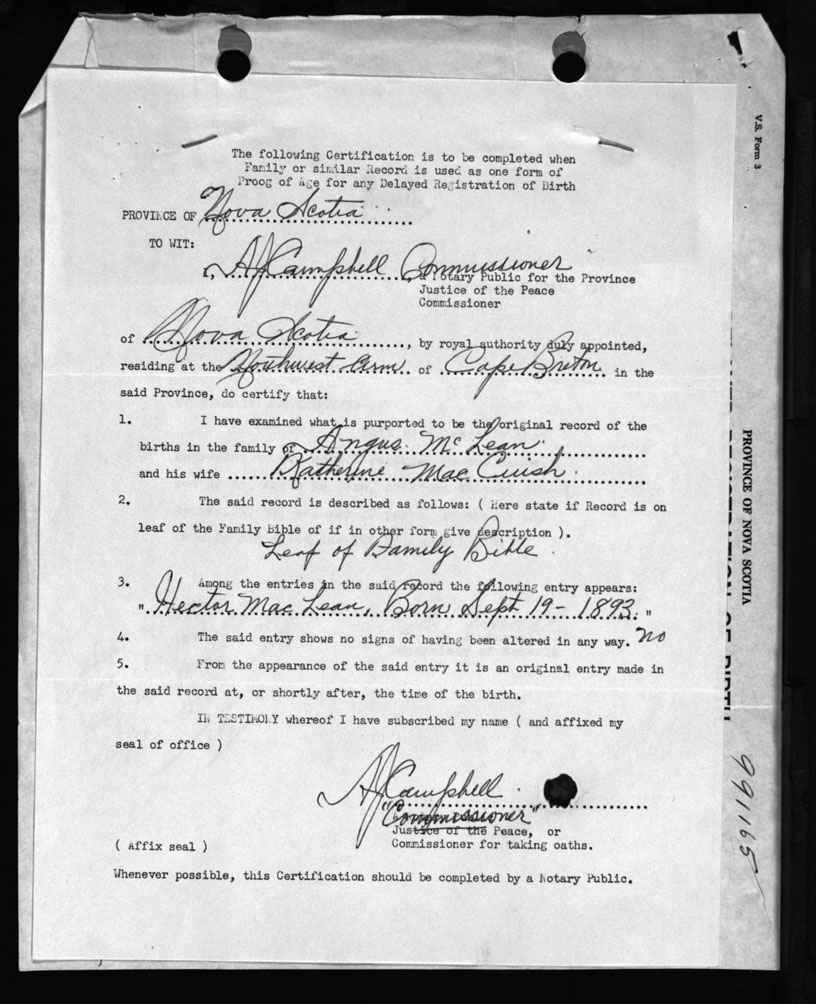 The following Certification is to be completed when
Family or similar Record is used as one form of
Proog of Age for any Delayed Registration of Birth
PROVINCE OF Nova Scotia
TO WIT:
I, A J Campbell Commissioner, a Notary Public for the Province
Justice of the Peace
Commissioner
of Nova Scotia, by royal authority duly appointed,
residing at the Northwest Arm of Cape Breton in the
said Province, do certify that:
1. I have examined what is purported to be the original record of the
births in the family of Angus McLean
and his wife Katherine MacCuish
2. The said record is described as follows: ( Here state if Record is on
leaf of the Family Bible of if in other form give description ).
Leaf of Family Bible.
3. Among the entries in the said record the following entry appears:
" Hector MacLean, Born Sept 19 - 1893. "
4. The said entry shows no signs of having been altered in any way. no
5. From the appearance of the said entry it is an original entry made in
the said record at, or shortly after, the time of the birth.
IN TESTIMONY whereof I have subscribed my name ( and affixed my
seal of office )
A J Campbell
"Commissioner"
Justice of the Peace, or
( Affix seal ) Commissioner for taking oaths.
Whenever possible, this Certification should be completed by a Notary Public.
V.S. Form 3
PROVINCE OF NOVA SCOTIA
REGISTRATION OF BIRTH
991165